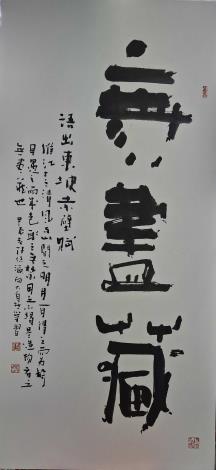 無盡藏
語出東坡赤壁賦
惟江上之清風與山間之明月耳得之而為聲
目遇之而成色取之無禁用之不竭是造物者之
無盡藏也